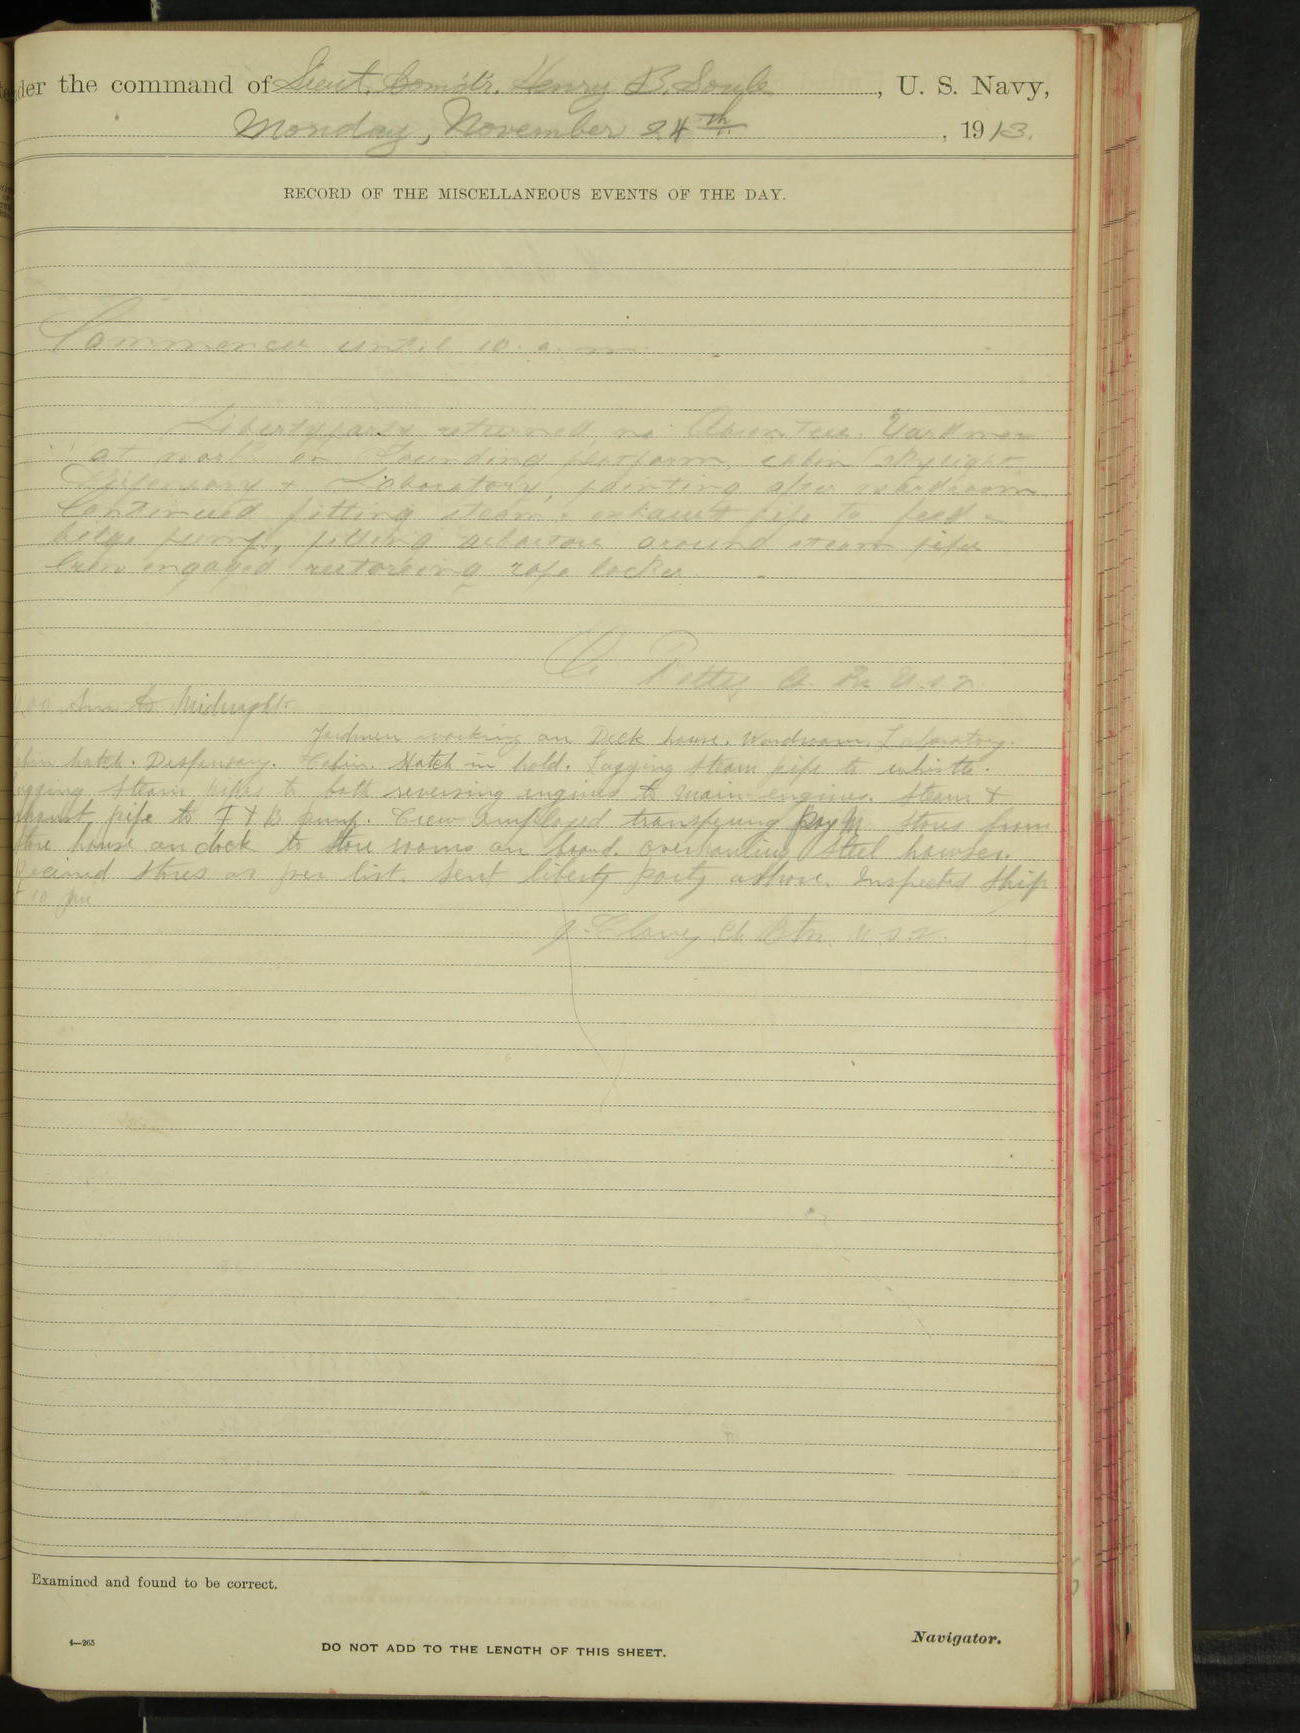 under the command of Lieut. Comdr. Henry B. Soule, U. S. Navy,
Monday, November 24th, 1913.
RECORD OF THE MISCELLANEOUS EVENTS OF THE DAY.
Commences until 10. a. m.
Liberty party returned, no Absentees. Yardmen
at work on Sounding platform, cabin skylight
Dispensary & Laboratory, painting after wardroom.
Continued fitting steam & exhaust pipe to feed &
bilge pump, fitting asbestos around steam pipes
Crew engaged restoring rope locker.
Potter U.S.N.
to Midnight
Yardmen working on Deck house. Wardroom. Laboratory.
Cabin hatch. Dispensary. Cabin. Hatch in hold. Lagging steam pipe to whistle.
Lagging steam pipes to both reversing engines to main engines. Steam &
exhaust pipe to F & B pump. Crew employed transfering Pay M. Stores from
store house on dock to store rooms on board. Overhauling Steel hawser.
Received stores as per list. Sent liberty party ashore. Inspected Ship
10 pm
J. Clancy Ch. Btn. U.S.N.
Examined and found to be correct.
4—265
DO NOT ADD TO THE LENGTH OF THIS SHEET.
Navigator.